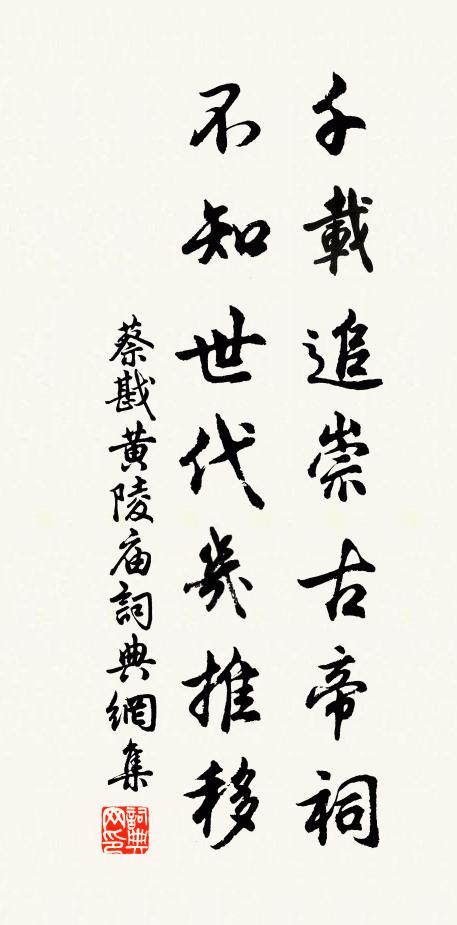 千載追崇古帝祠
不知世代幾推移
蔡戡黄陵庙詞典網集
詞典网印